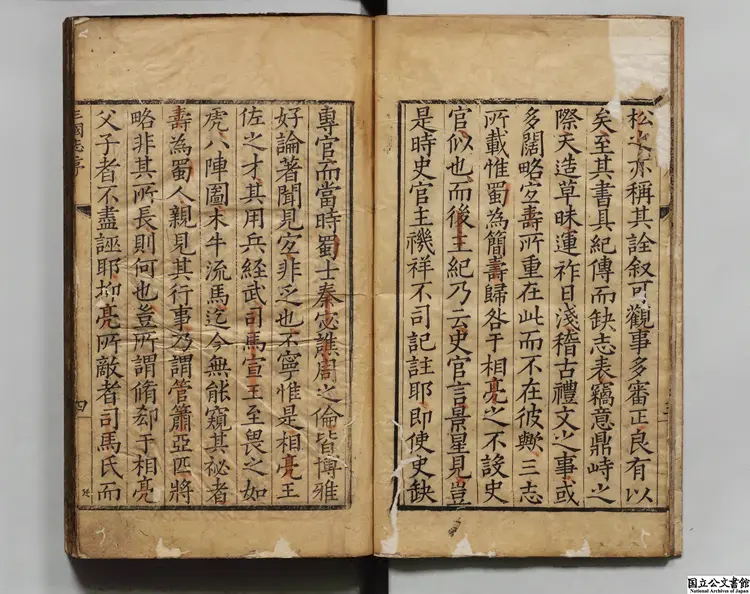 松之亦稱其詮叙可觀事多審正良有以
矣至其書具紀傳而缺志表竊意鼎峙之
際天造草昧運祚日淺稽古禮文之事或
多闊略㝎壽所重在此而不在彼歟三志
所載惟蜀為簡壽歸咎于相亮之不設史
官似也而後主紀乃云史官言景星見豈
是時史官主禨祥不司記註耶即使史缺
專官而當時蜀士秦宓譙周之倫皆博雅
好論著聞見㝎非乏也不寧惟是相亮王
佐之才其用兵経武司馬宣王至畏之如
虎八陣圖木牛流馬迄今無能窺其祕者
壽為蜀人親見其行事乃謂管蕭亞匹將
略非其所長則何也豈所謂脩却于相亮
父子者不盡誣耶抑亮所敵者司馬氏而
三國志序
四
国立公文書館
National Archives of Japan